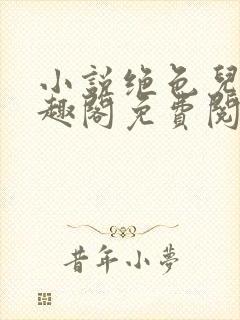 小説绝色兒
趣閣免費閱
昔年小夢